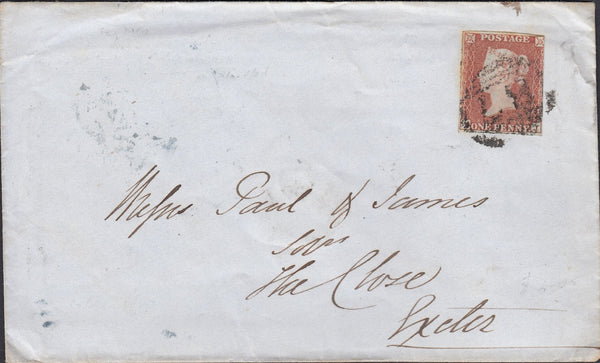 POSTAGE
ONE PENNY
Messrs Paul & James
Solrs
The Close
Exeter